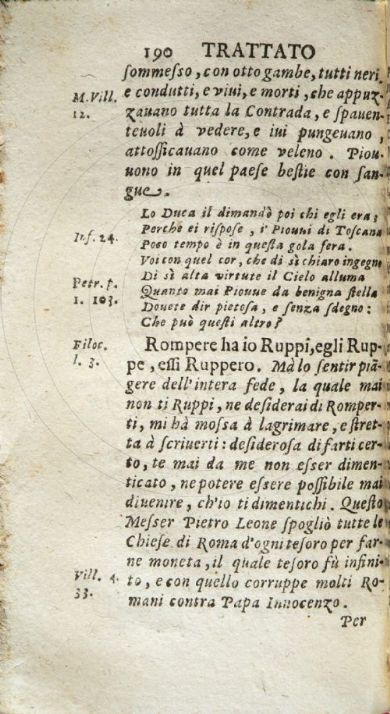 190 TRATTATO
sommesso, con otto gambe, tutti neri,
M. Vill. 12. e condutti, e viui, e morti, che appuz-
zauano tutta la Contrada, e spauen-
teuoli à vedere, e iui pungeuano,
attossicauano come veleno. Piou-
uono in quel paese bestie con san-
gue.
Lo Duca il dimandò poi chi egli era;
Inf. 24. Perche ei rispose, i' Piouui di Toscana
Poco tempo è in questa gola fera.
Voi con quel cor, che di sì chiaro ingegno
Petr. p. 1. 103. Di sì alta virtute il Cielo alluma
Quanto mai Piouue da benigna stella
Douete dir pietosa, e senza sdegno:
Che può questi altro?
Filoc. l. 3. Rompere ha io Ruppi, egli Rup-
pe, essi Ruppero. Mà lo sentir piã-
gere dell'intera fede, la quale mai
non ti Ruppi, ne desiderai di Romper-
ti, mi hà mossa à lagrimare, e stret-
ta à scriuerti: desiderosa di farti cer-
to, te mai da me non esser dimen-
ticato, ne potere essere possibile mai
diuenire, ch'io ti dimentichi. Questo
Messer Pietro Leone spogliò tutte le
Chiese di Roma d'ogni tesoro per far-
ne moneta, il quale tesoro fù infini-
Vill. 4. 33. to, e con quello corruppe molti Ro-
mani contra Papa Innocenzo.
Per